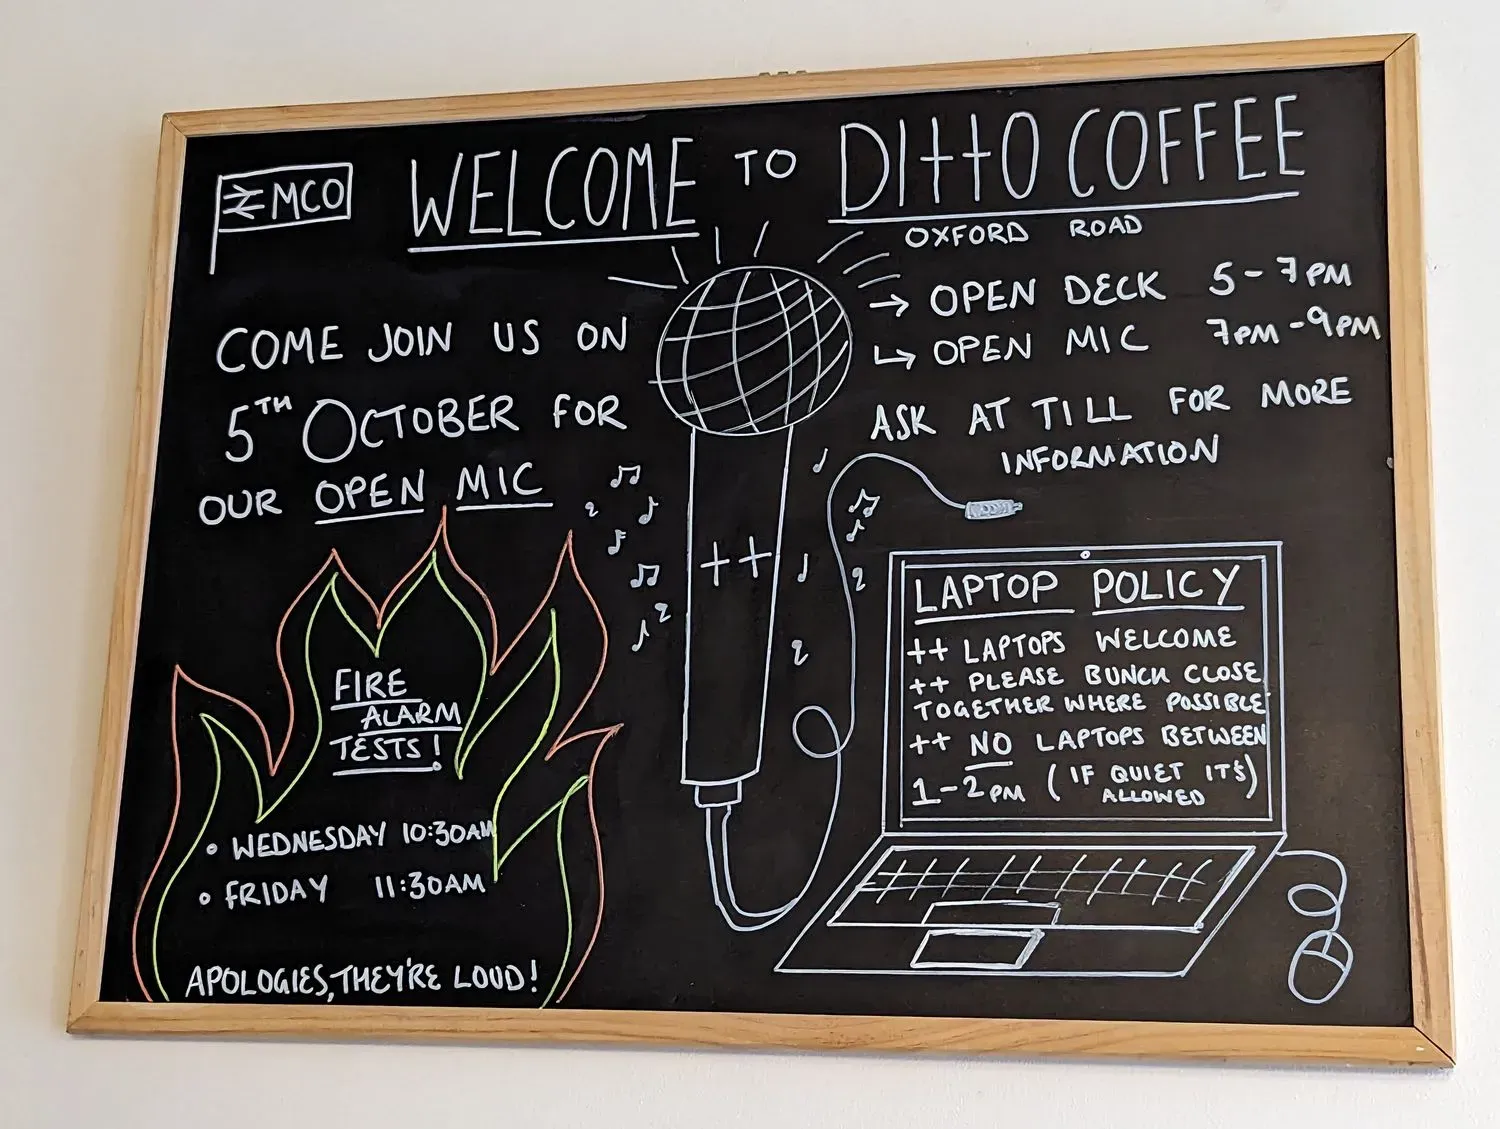 MCO
WELCOME TO DITTO COFFEE
OXFORD ROAD
COME JOIN US ON
5TH OCTOBER FOR
OUR OPEN MIC
→ OPEN DECK 5-7PM
↳ OPEN MIC 7PM-9PM
ASK AT TILL FOR MORE
INFORMATION
++
FIRE
ALARM
TESTS!
• WEDNESDAY 10:30AM
• FRIDAY 11:30AM
APOLOGIES, THEY'RE LOUD!
LAPTOP POLICY
++ LAPTOPS WELCOME
++ PLEASE BUNCH CLOSE
TOGETHER WHERE POSSIBLE
++ NO LAPTOPS BETWEEN
1-2PM (IF QUIET IT'S
ALLOWED)